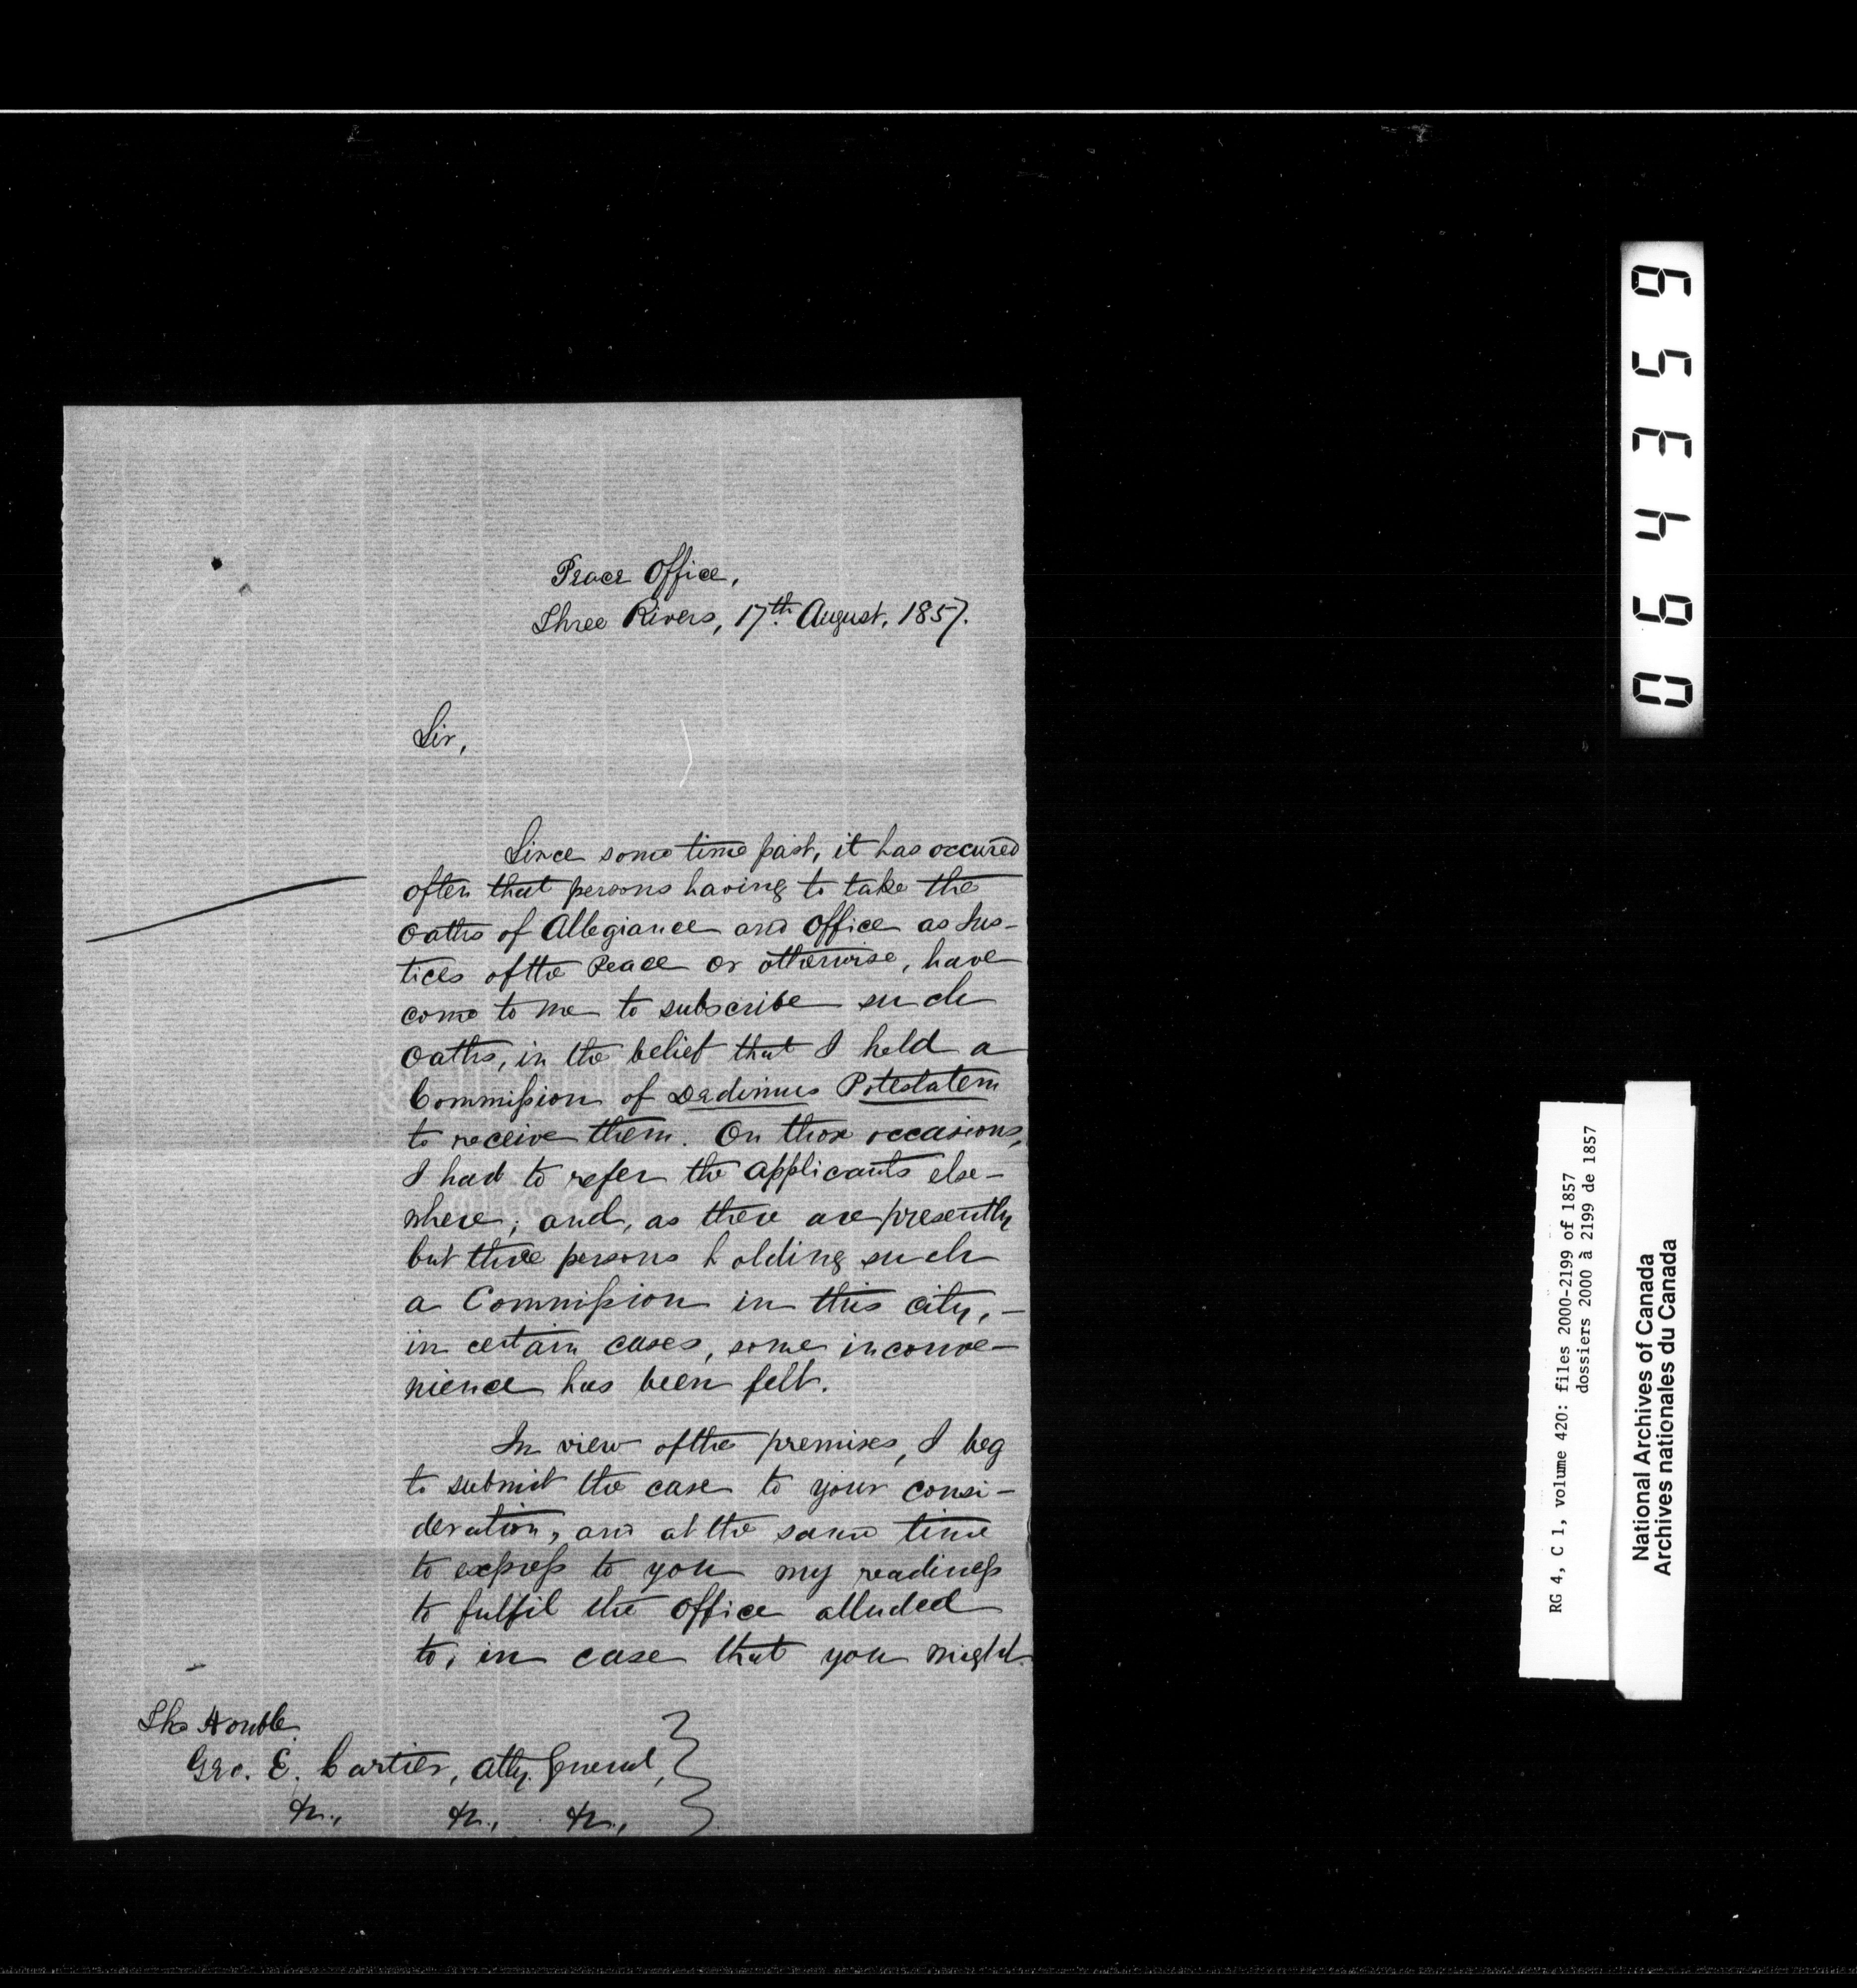 Peace Office,
Three Rivers, 17th August, 1857.
Sir,
Since some time past, it has occured
often that persons having to take the
oaths of Allegiance and Office as Jus-
tices of the Peace or otherwise, have
come to me to subscribe such
oaths, in the belief that I held a
Commission of Dedimus Potestatem
to receive them. On those occasions,
I had to refer the applicants else-
where; and, as there are presently
but three persons holding such
a Commission in this city, -
in certain cases, some inconve-
nience has been felt.
In view of the premises, I beg
to submit the case to your consi-
deration, and at the same time
to express to you my readiness
to fulfil the office alluded
to, in case that you might
The Honble.
Geo. E. Cartier, Atty. General,
&c., &c., &c.,
064359
RG 4, C 1, volume 420: files 2000-2199 of 1857
dossiers 2000 à 2199 de 1857
National Archives of Canada
Archives nationales du Canada